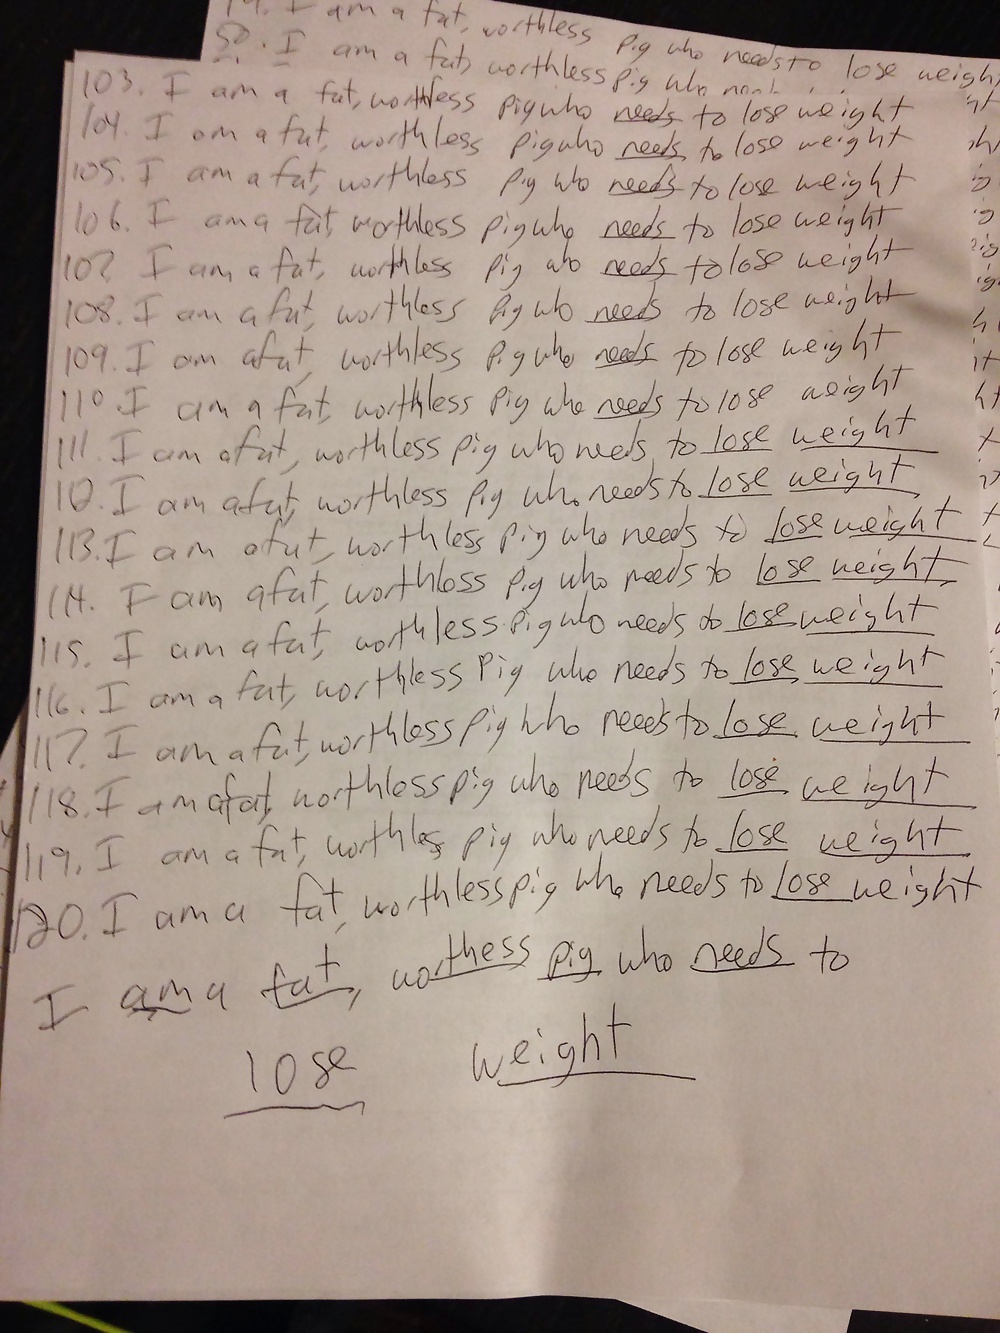 I am a fat, worthless pig who needs to lose weight
50. I am a fat, worthless pig who
103. I am a fat, worthless pig who needs to lose weight
104. I am a fat, worthless pig who needs to lose weight
105. I am a fat, worthless pig who needs to lose weight
106. I am a fat, worthless pig who needs to lose weight
107. I am a fat, worthless pig who needs to lose weight
108. I am a fat, worthless pig who needs to lose weight
109. I am a fat, worthless pig who needs to lose weight
110. I am a fat, worthless pig who needs to lose weight
111. I am a fat, worthless pig who needs to lose weight
112. I am a fat, worthless pig who needs to lose weight
113. I am a fat, worthless pig who needs to lose weight
114. I am a fat, worthless pig who needs to lose weight
115. I am a fat, worthless pig who needs to lose weight
116. I am a fat, worthless pig who needs to lose weight
117. I am a fat, worthless pig who needs to lose weight
118. I am a fat, worthless pig who needs to lose weight
119. I am a fat, worthless pig who needs to lose weight
120. I am a fat, worthless pig who needs to lose weight
I am a fat, worthess pig who needs to
lose weight